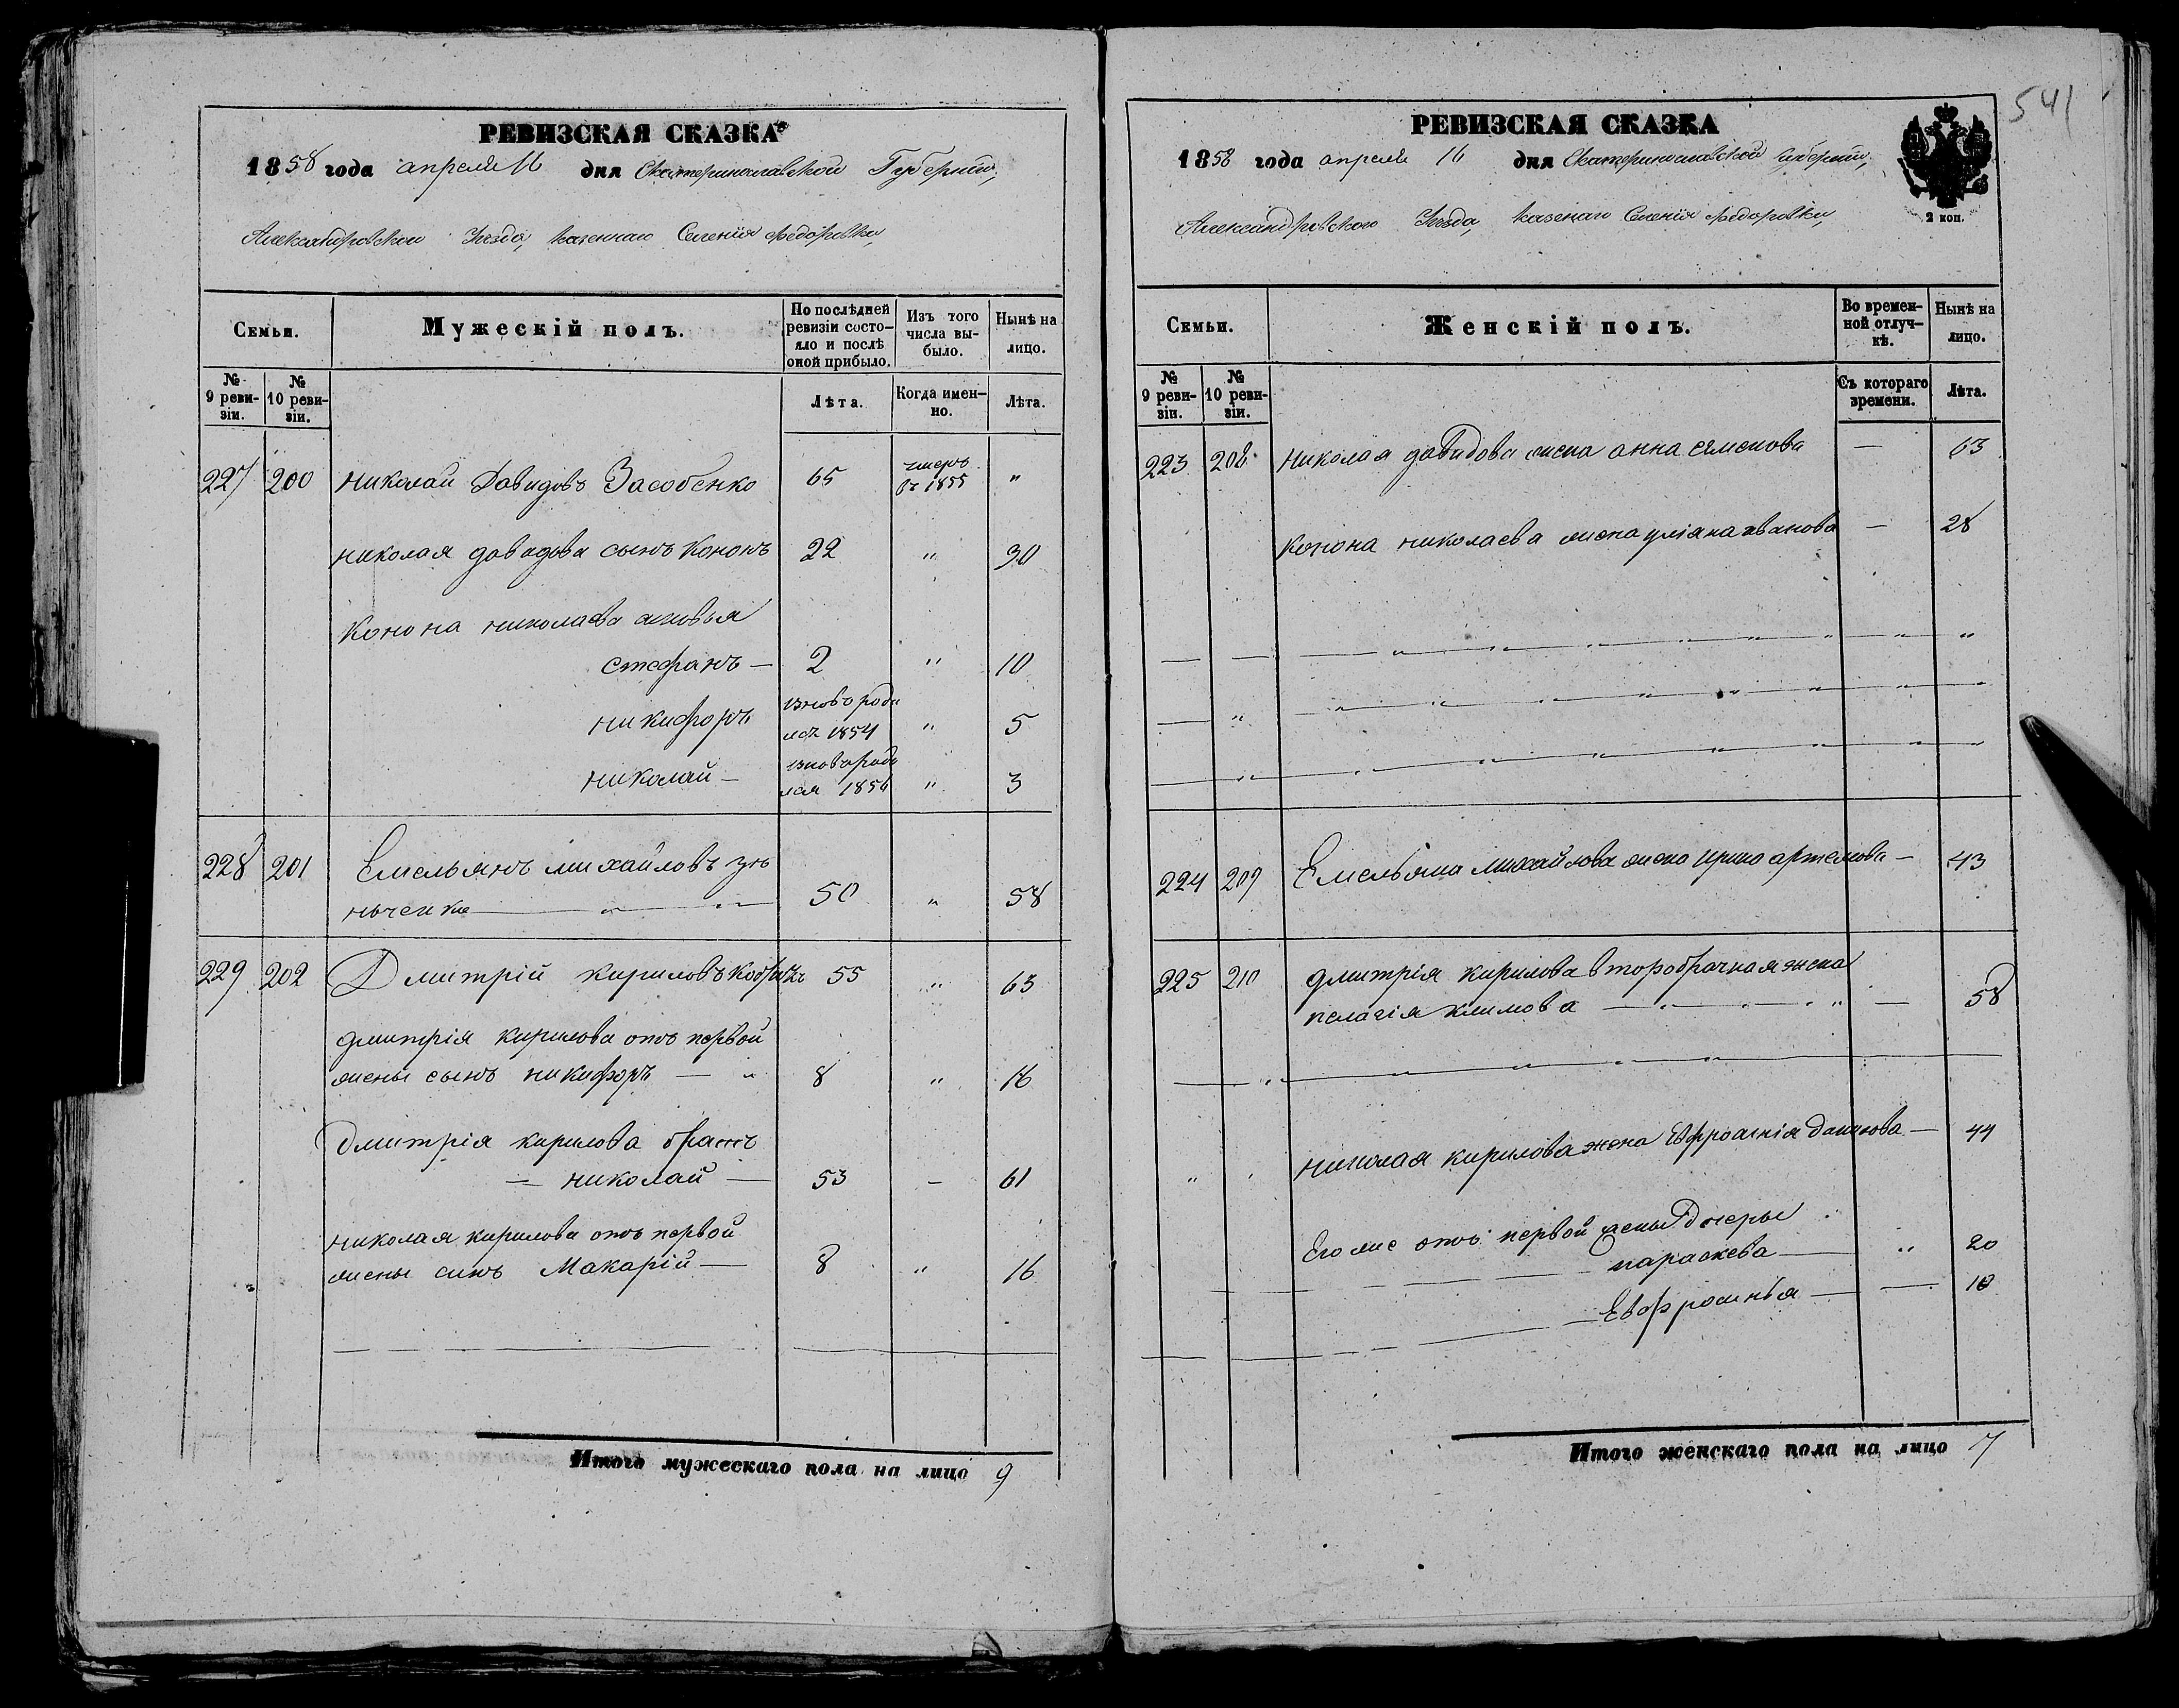 РЕВИЗСКАЯ СКАЗКА
1858 года апреля 16 дня Екатеринославской Губернии,
Александровского Уезда, казеннаго Селения Федоровки,
Семьи.
Мужескій полъ.
По послѣдней
ревизіи состо-
яло и послѣ
оной прибыло.
Изъ того
числа вы-
было.
Нынѣ на
лицо.
№
9 реви-
зіи.
№
10 реви-
зіи.
Лѣта.
Когда имен-
но.
Лѣта.
227 200 николай Давидовъ Засобенко 65 умеръ "
въ 1855
николая давидова сынъ Кононъ 22 " 30
Конона николаева сыновья
стефанъ — 2 " 10
вновь роди
никифоръ лся 1854 " 5
вновь роди
николай — лся 1856 " 3
228 201 Емельянъ михайловъ
50 " 58
229 202 Дмитрій кириловъ 55 " 63
дмитрія кирилова отъ первой
жены сынъ никифоръ — " 8 " 16
Дмитрія кирилова братъ
— николай — 53 - 61
николая кирилова отъ первой
жены синъ Макарій — 8 " 16
Итого мужескаго пола на лицо 9
541
РЕВИЗСКАЯ СКАЗКА
1858 года апреля 16 дня Екатеринославской губернии,
Александровского Уезда, казенаго Селения Федоровки,
2 коп.
Семьи.
Женскій полъ.
Во времен-
ной отлуч-
кѣ.
Нынѣ на
лицо.
№
9 реви-
зіи.
№
10 реви-
зіи.
Съ котораго
времени.
Лѣта.
223 208 николая давидова жена анна семенова — 63
Конона николаева жена уліана иванова — 28
224 209 Емельяна Михайлова жена ирина артемова — 43
225 210 дмитрія кирилова второбрачная жена
пелагія климова — 58
николая кирилова жена Евфросинія данилова — 44
Его же отъ первой жены Дочеры
параскева — " 20
Евфросинья — 10
Итого женскаго пола на лицо 7